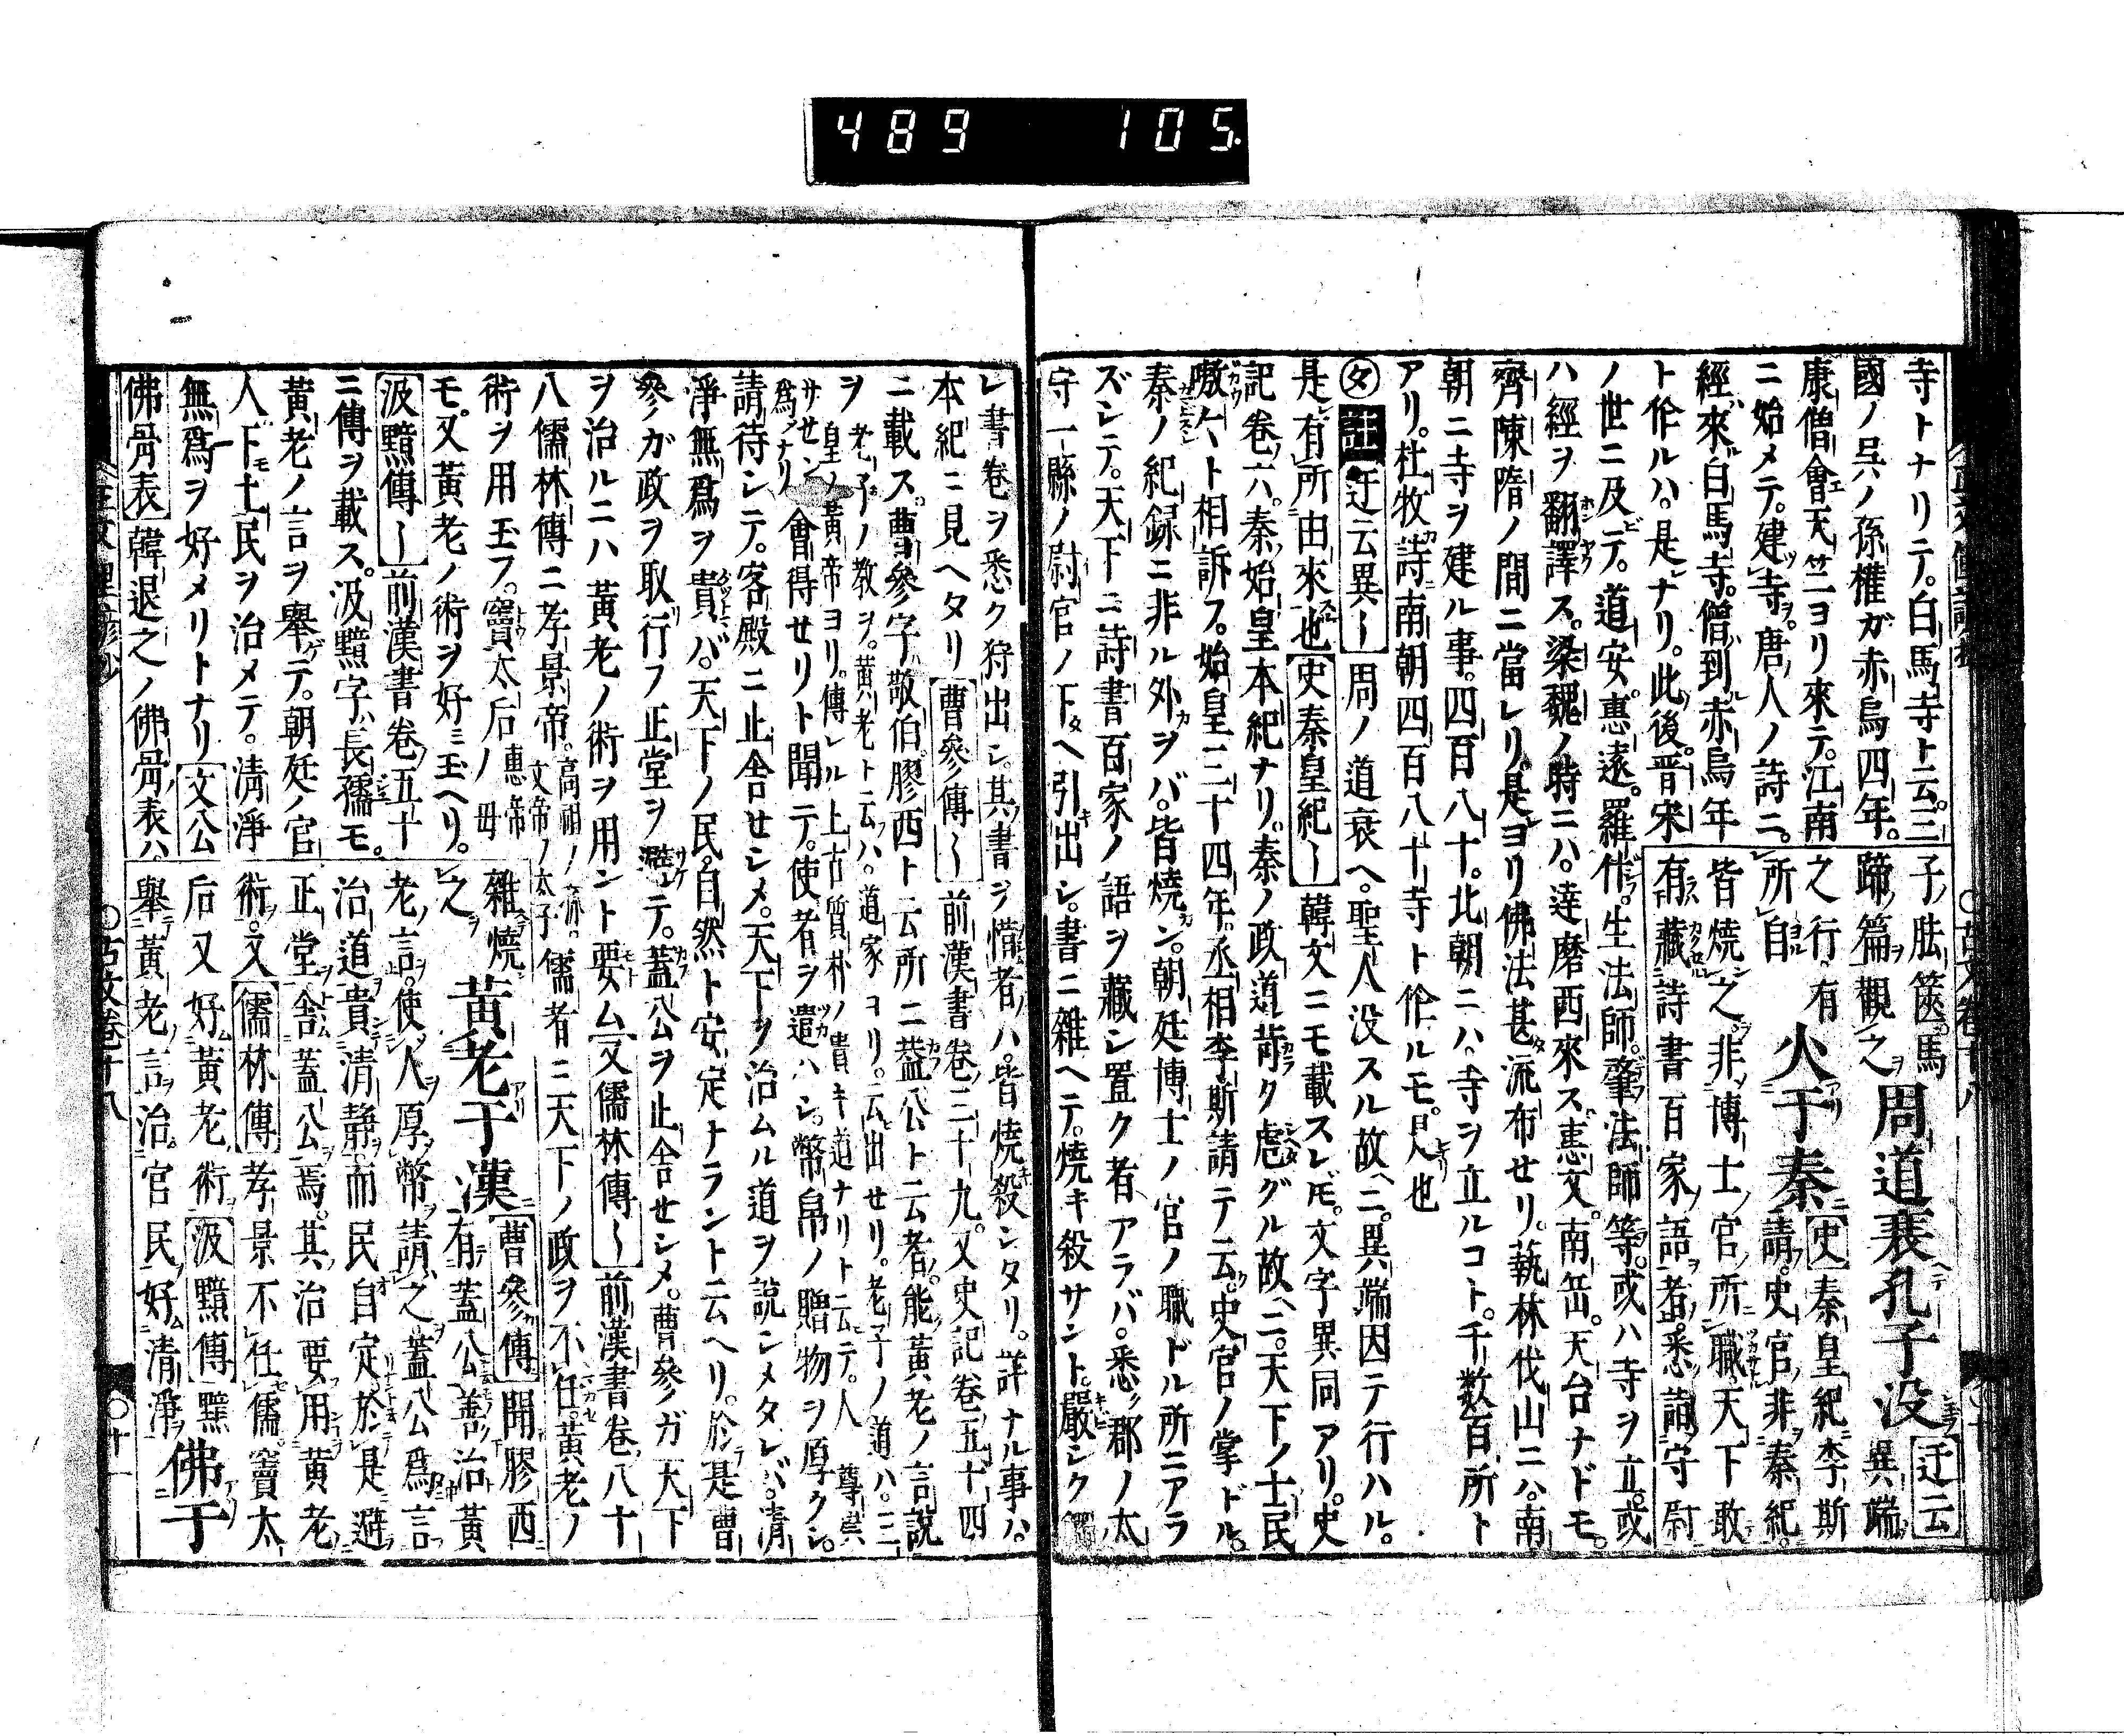 489 105
寺トナリテ。白馬寺ト云。三
國ノ呉ノ孫權ガ赤烏四年。
康僧會天竺ヨリ來テ。江南
ニ始メテ。建寺。唐人ノ詩ニ。
經來白馬寺。僧到赤烏年
ト作ルハ。是ナリ。此後。晋宋
子胠篋馬
蹄篇觀之
之行有
所自
周道衰孔子没
火于秦
迂云
異端
史
秦皇紀李斯
請。史官非秦紀。
皆燒之非博士官所職天下敢
有藏詩書百家語者。悉詣守尉
ノ世ニ及テ。道安。惠遠。羅什。生法師。肇法師等。或ハ寺ヲ立。或
ハ經ヲ翻譯ス。梁魏ノ時ニハ。達磨西來ス。惠文。南岳。天台ナドモ。
齊陳隋ノ間ニ當レリ。是ヨリ佛法甚流布セリ。藝林伐山ニハ。南
朝ニ寺ヲ建ル事。四百八十。北朝ニハ。寺ヲ立ルコト。千數百所ト
アリ。杜牧詩南朝四百八十寺ト作ルモ。
迂云異〜 周ノ道衰ヘ。聖人没スル故ニ。異端因テ行ハル。
是有所由來也 史秦皇紀〜 韓文ニモ載スレドモ。文字異同アリ。史
記卷六。秦始皇本紀ナリ。秦ノ政道背タ虐グル故ニ。天下ノ士民
嗷々ト相訴フ。始皇三十四年。丞相李斯請テ云。史官ノ掌ドル。
秦ノ紀録ニ非ル外ヲバ。皆燒ン。朝廷博士ノ官ノ職ドル所ニアラ
ズシテ。天下ニ詩書百家ノ語ヲ藏シ置ク者アラバ。悉郡ノ太
守一縣ノ尉官ノ下ヘ引出シ。書ニ雜ヘテ。燒キ殺サント。嚴シク觸
レ書卷ヲ悉ク狩出シ。其書ヲ惜者ハ。皆燒殺シタリ。詳ナル事ハ。
本紀ニ見ヘタリ 曹參傳〜 前漢書卷三十九。又史記卷五十四
ニ載ス。曹參字敬伯。膠西ト云所ニ蓋公ト云者。能黃老ノ言説
ヲ 老子ノ教ヲ。黃老ト云ハ。道家ヨリ。云出セリ。老子ノ道ハ。三
皇ノ黃帝ヨリ。傳レル上古質朴ノ貴キ道ナリト云テ。人尊
サセン
爲ナリ 會得セリト聞テ。使者ヲ遣ハシ。幣帛ノ贈物ヲ厚クシ。
請待シテ。客殿ニ止舍セシメ。天下ヲ治ムル道ヲ說シメタレバ。清
淨無爲ヲ貴バ。天下ノ民。自然ト安定ナラント云ヘリ。於是曹
參ノガ政ヲ取行フ正堂ヲ避テ。蓋公ヲ止舍セシメ。曹參ガ天下
ヲ治ルニハ黃老ノ術ヲ用ント要ム 又儒林傳〜 前漢書卷八十
八儒林傳ニ孝景帝。高祖ノ孫。文帝ノ太子 儒者ニ天下ノ政ヲ不任。黃老ノ
術ヲ用玉フ。竇太后ノ 惠帝母
モ。又黃老ノ術ヲ好ミ玉ヘリ。
汲黯傳〜 前漢書卷五十
ニ傳ヲ載ス。汲黯字長孺モ。
黃老ノ言ヲ舉テ。朝廷ノ官
人下モ士民ヲ治メテ。清淨
無爲ヲ好メリトナリ 文公
佛骨表 韓退之ノ佛骨表ハ
雜燒
之
黃老于漢
曹參傳 聞膠西
有蓋公善治黃
老言。使人厚幣請之蓋公爲言
治道貴清靜而民自定於是避
正堂舍蓋公焉。其治要用黃老
術。又 儒林傳 孝景不任儒竇太
后又好黃老術 汲黯傳 黯
舉黃老言治。官民好清淨
佛于
古文卷十八
十一